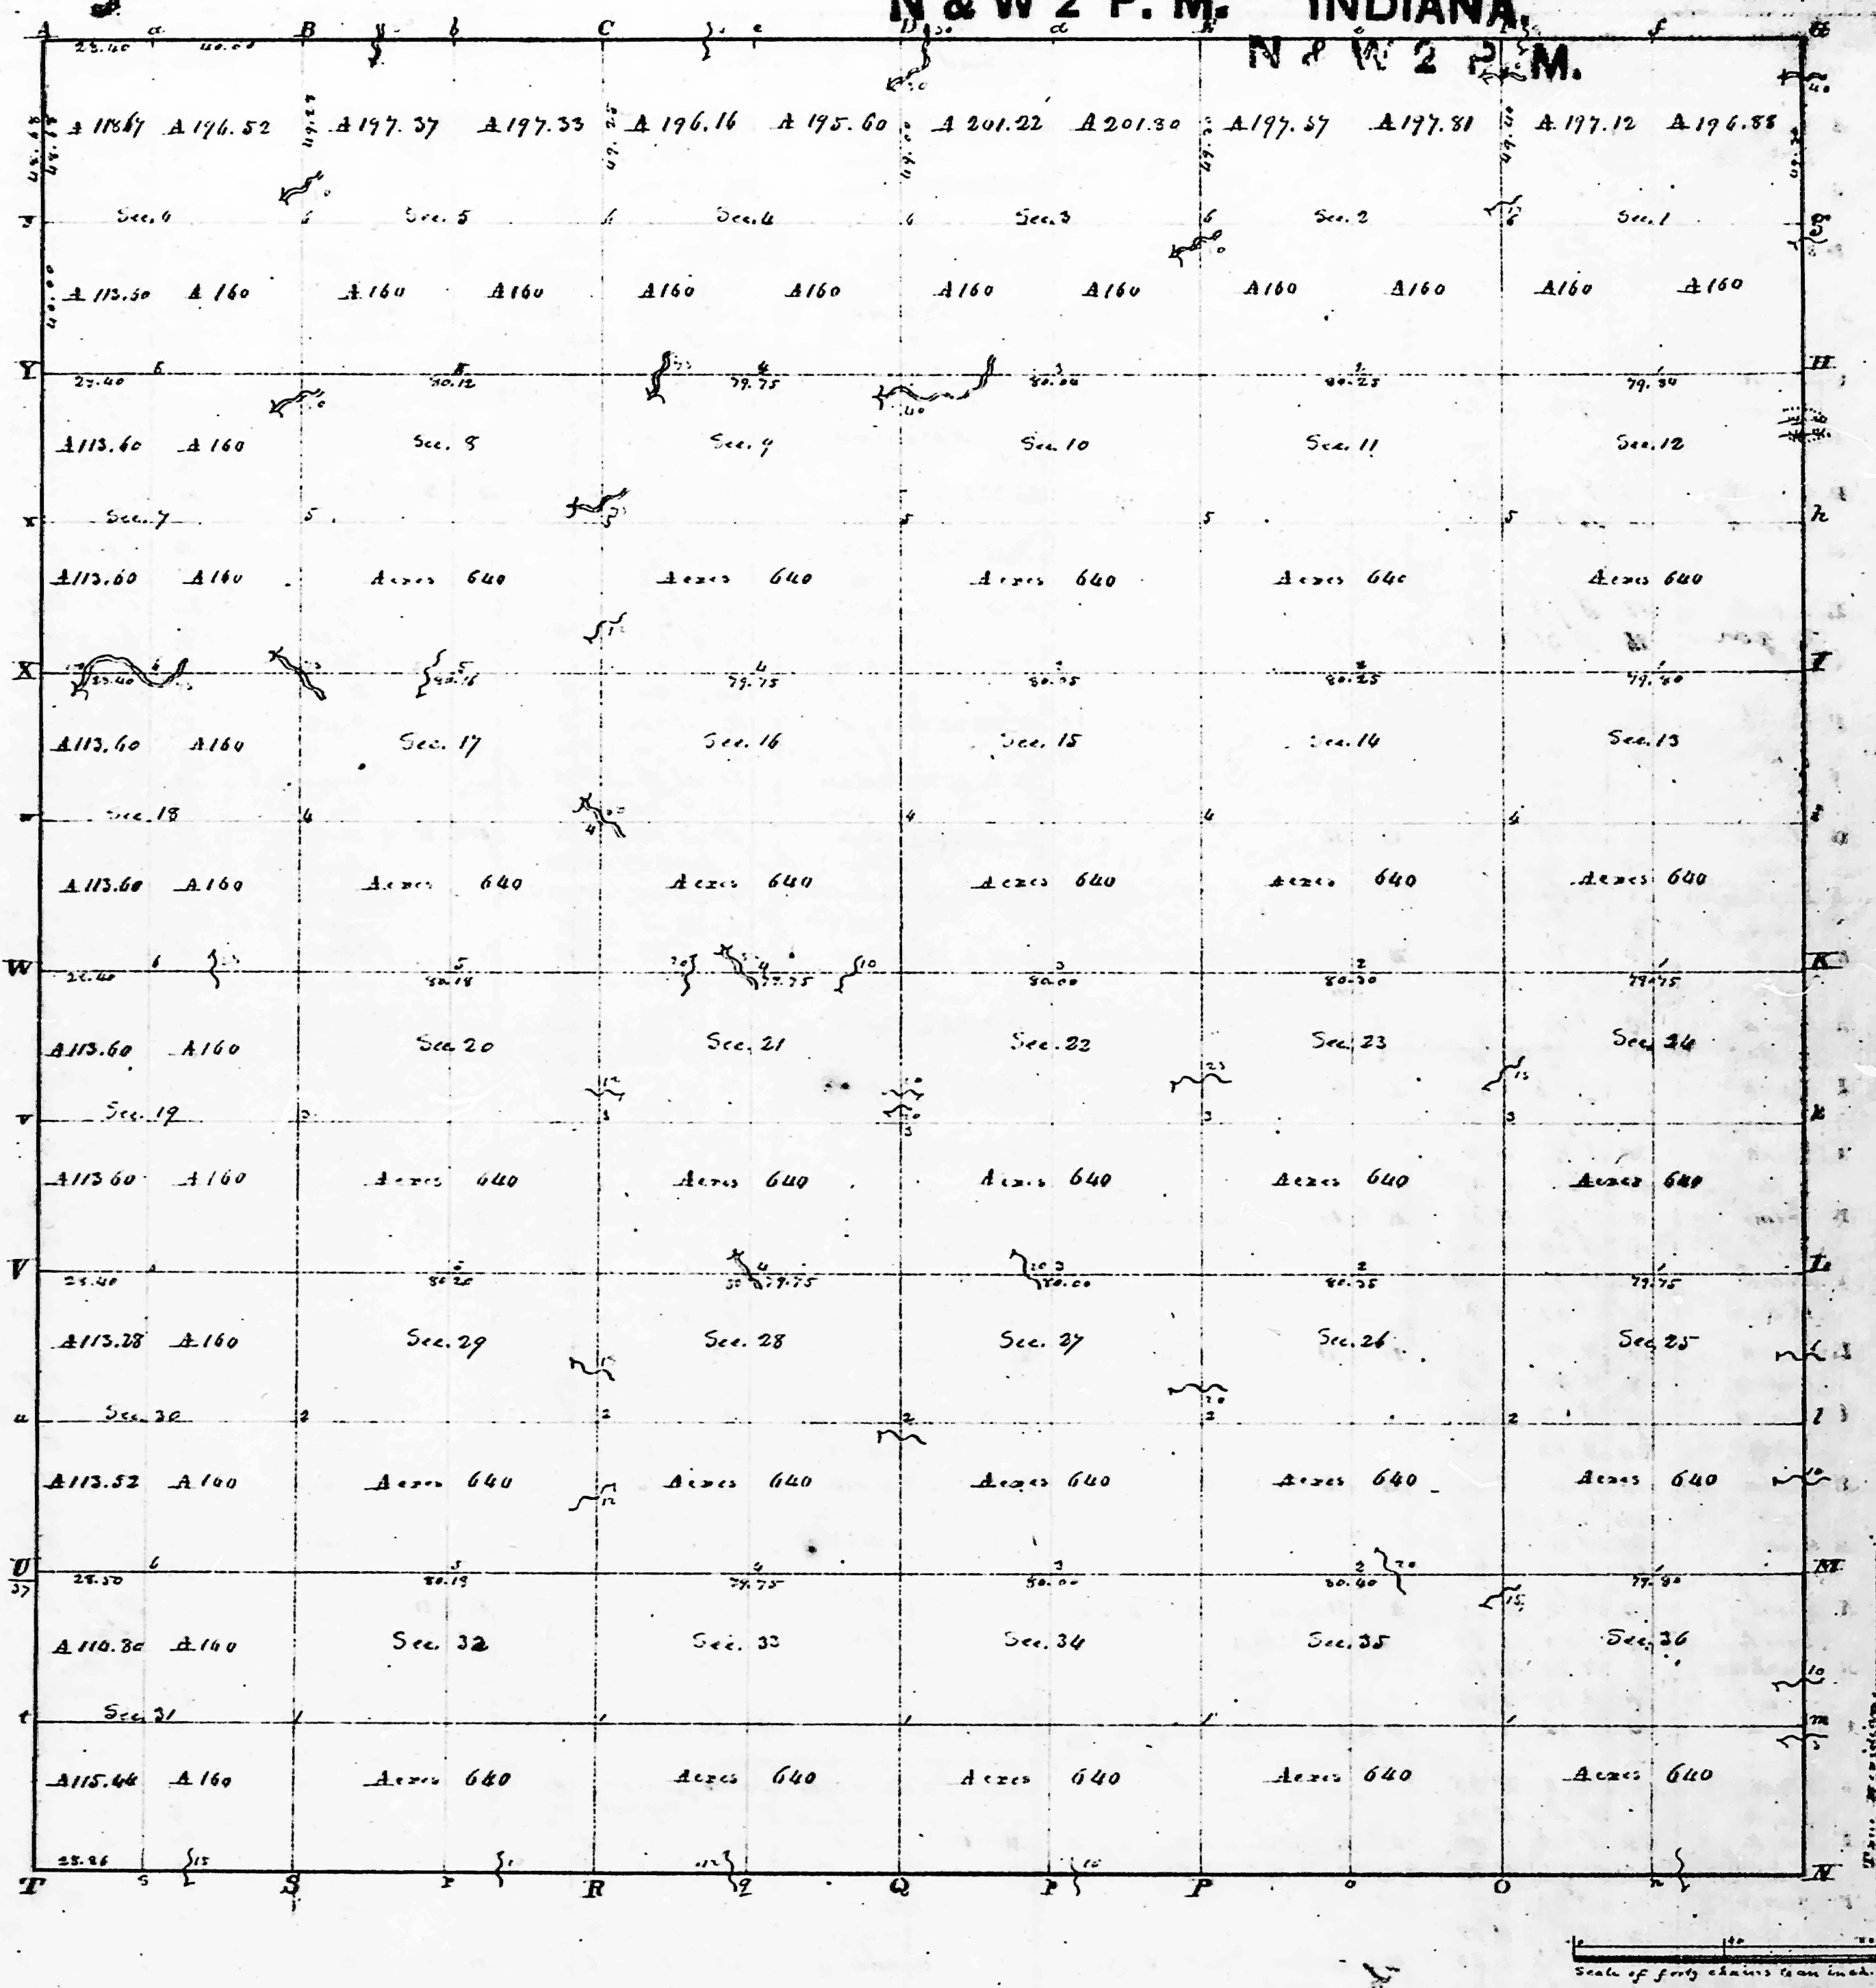 N & W 2 P. M. INDIANA.
N & W 2 P. M.
A a B b C c D d e f
28.40 40.00
A 196.52 A 197.37 A 197.33 A 196.16 A 195.60 A 201.22 A 201.80 A 197.57 A 197.81 A 197.12 A 196.88
Sec. 6 Sec. 5 Sec. 4 Sec. 3 Sec. 2 Sec. 1 g
6 6 6 6 6
40.00
A 113.60 A 160 A 160 A 160 A 160 A 160 A 160 A 160 A 160 A 160 A 160 A 160
Y H
28.40 80.12 79.75 80.04 80.25 79.84
A 113.60 A 160 Sec. 8 Sec. 9 Sec. 10 Sec. 11 Sec. 12
x Sec. 7 5 5 5 5 5 h
A 113.60 A 160 Acres 640 Acres 640 Acres 640 Acres 640 Acres 640
X 6 5 4 2 I
28.40 80.16 79.75 80.05 80.25 79.80
A 113.60 A 160 Sec. 17 Sec. 16 Sec. 15 Sec. 14 Sec. 13
Sec. 18 4 4 4 4 4 i
A 113.60 A 160 Acres 640 Acres 640 Acres 640 Acres 640 Acres 640
W 6 5 20 4 10 3 2 1 K
28.40 80.18 79.75 80.00 80.30 79.75
A 113.60 A 160 Sec. 20 Sec. 21 Sec. 22 Sec. 23 Sec. 24
v Sec. 19 3 3 3 3 3 k
A 113.60 A 160 Acres 640 Acres 640 Acres 640 Acres 640 Acres 640
V 4 3 2 1 L
28.40 80.20 79.75 80.00 80.35 79.75
A 113.28 A 160 Sec. 29 Sec. 28 Sec. 27 Sec. 26 Sec. 25
u Sec. 30 2 2 2 2 2 l
A 113.52 A 160 Acres 640 Acres 640 Acres 640 Acres 640 Acres 640
U 6 5 4 3 2 20 1 M
37 28.50 80.19 79.75 80.00 80.40 79.80
A 110.80 A 160 Sec. 32 Sec. 33 Sec. 34 Sec. 35 Sec. 36
t Sec. 31 1 1 1 1 1 m
A 115.44 A 160 Acres 640 Acres 640 Acres 640 Acres 640 Acres 640
28.86 15
T s S r R q Q p P o O n N
Scale of forty chains to an inch